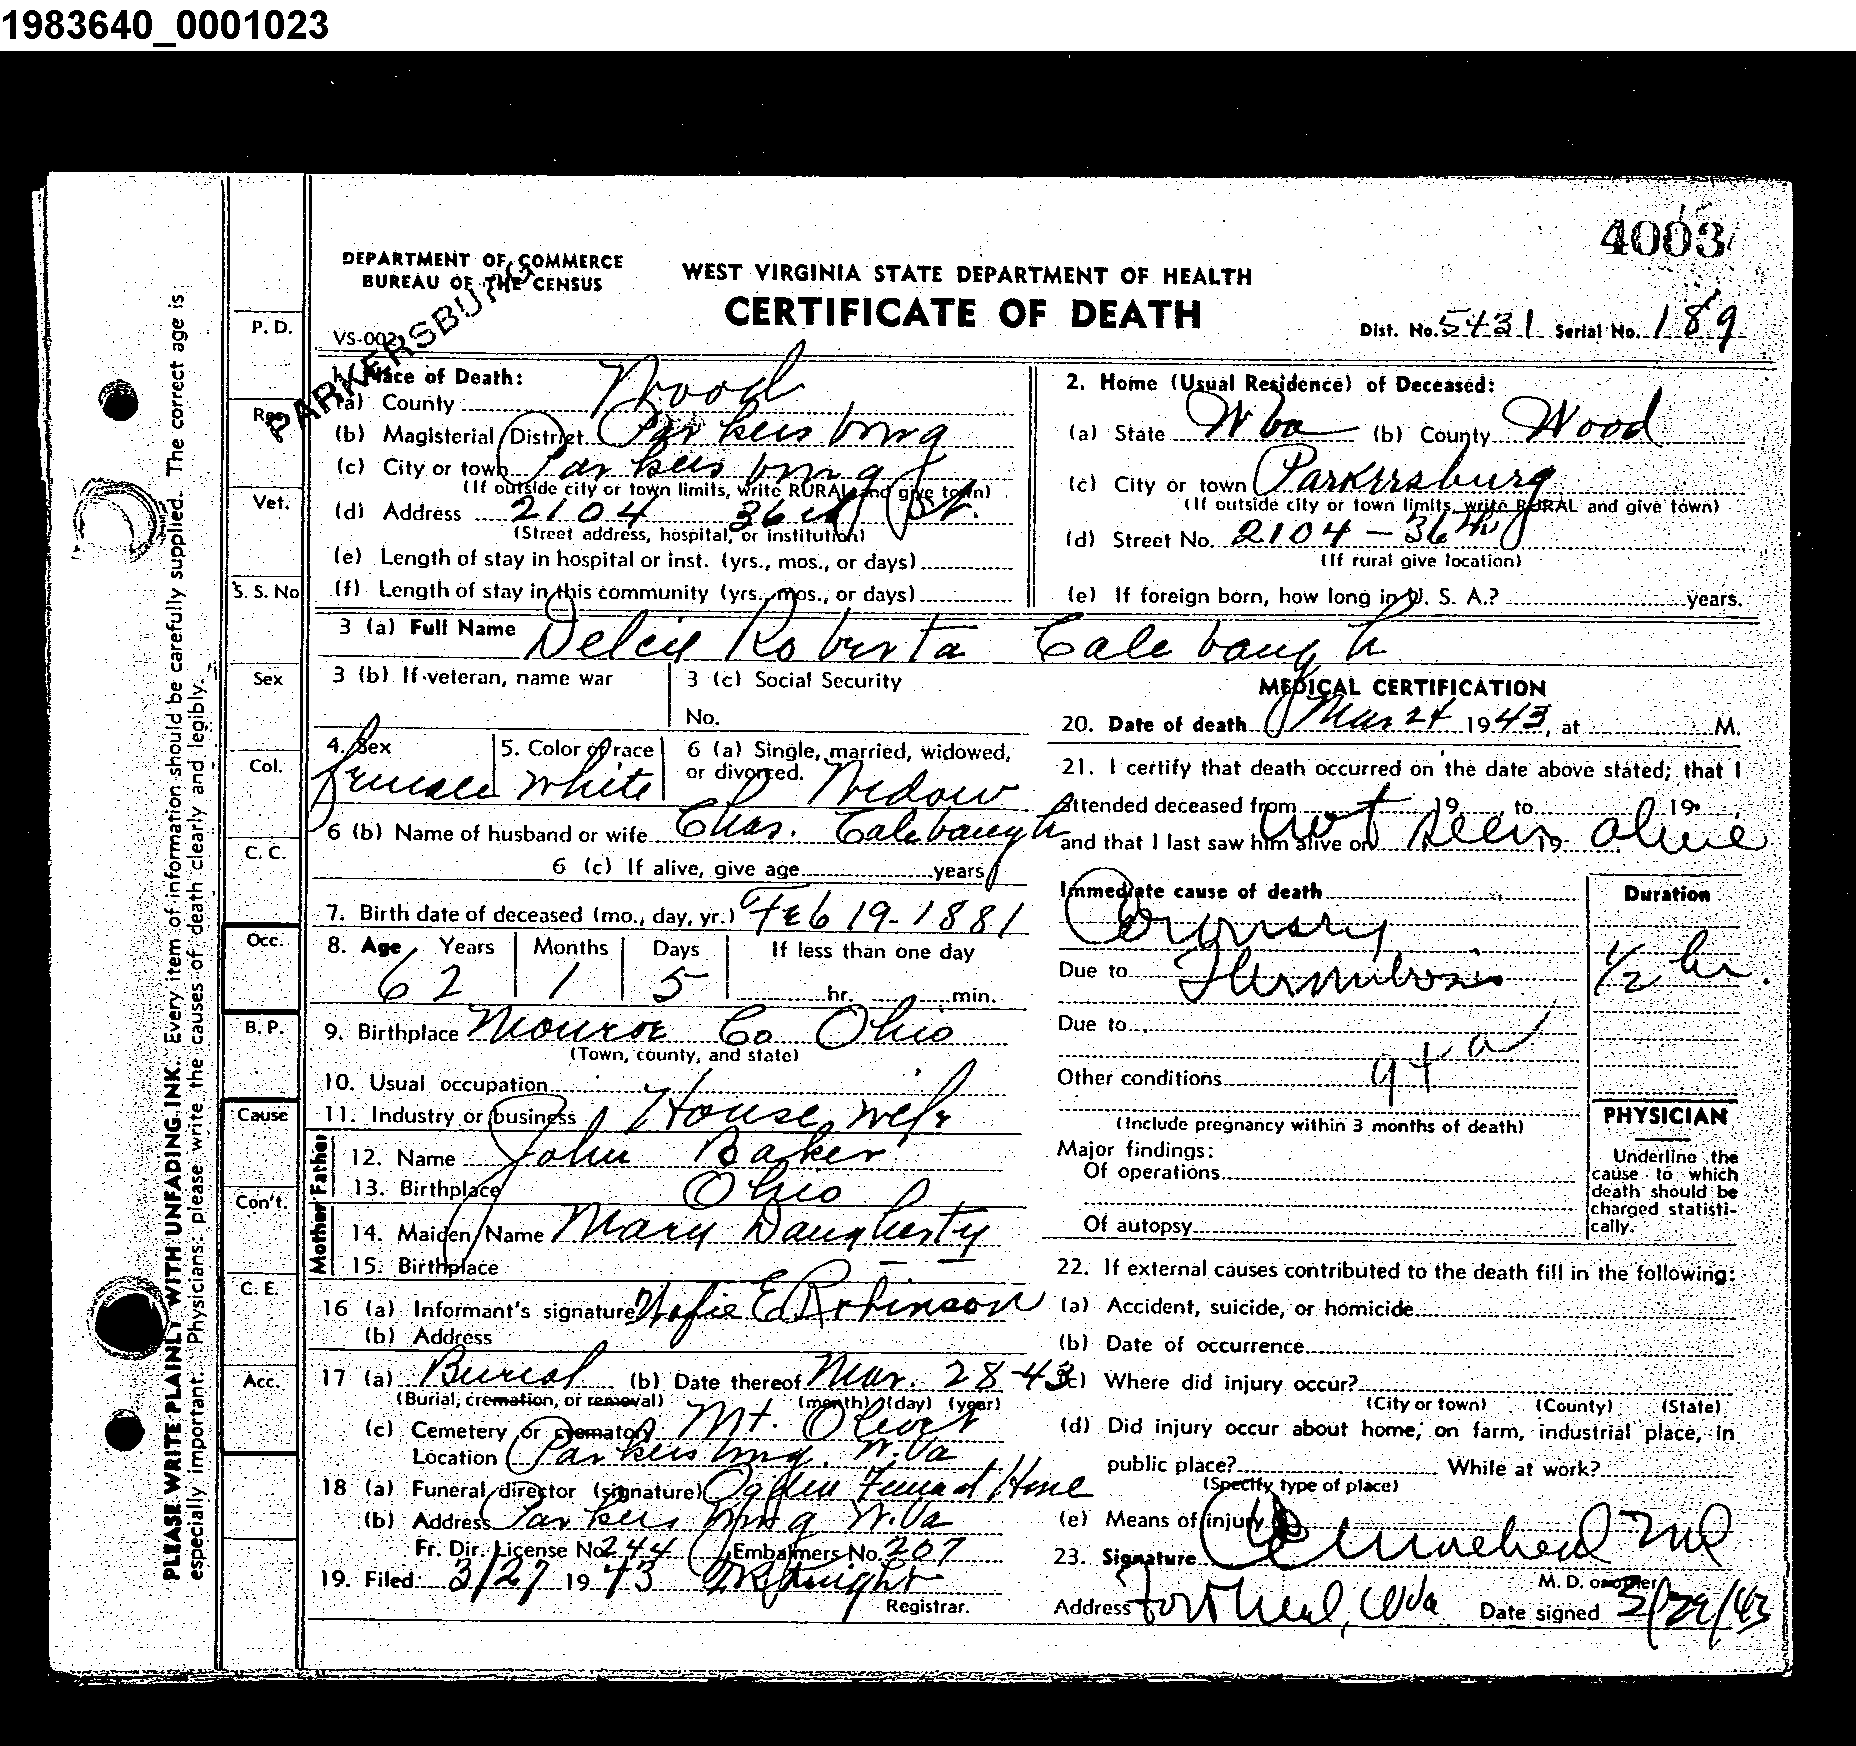 1983640_0001023
4003
DEPARTMENT OF COMMERCE
BUREAU OF THE CENSUS
WEST VIRGINIA STATE DEPARTMENT OF HEALTH
CERTIFICATE OF DEATH
VS-002
PARKERSBURG
Dist. No. 5431 Serial No. 189
PLEASE WRITE PLAINLY WITH UNFADING INK. Every item of information should be carefully supplied. The correct age is
especially important. Physicians: please write the causes of death clearly and legibly.
P. D.
Res.
Vet.
S. S. No
Sex
Col.
C. C.
Occ.
B. P.
Cause
Con't.
C. E.
Acc.
1. Place of Death:
(a) County Wood
(b) Magisterial District Parkersburg
(c) City or town Parkersburg
(If outside city or town limits, write RURAL and give town)
(d) Address 2104 36th St.
(Street address, hospital, or institution)
(e) Length of stay in hospital or inst. (yrs., mos., or days)
(f) Length of stay in this community (yrs., mos., or days)
2. Home (Usual Residence) of Deceased:
(a) State W Va (b) County Wood
(c) City or town Parkersburg
(If outside city or town limits, write RURAL and give town)
(d) Street No. 2104 - 36th
(If rural give location)
(e) If foreign born, how long in U. S. A.? years.
3 (a) Full Name Delcie Roberta Calebaugh
3 (b) If veteran, name war
3 (c) Social Security
No.
4. Sex female
5. Color of race White
6 (a) Single, married, widowed,
or divorced. Widow
6 (b) Name of husband or wife Chas. Calebaugh
6 (c) If alive, give age years
7. Birth date of deceased (mo., day, yr.) Feb 19-1881
8. Age Years Months Days If less than one day
62 1 5 hr. min.
9. Birthplace Monroe Co Ohio
(Town, county, and state)
10. Usual occupation
11. Industry or business House wife
Father
12. Name John Baker
13. Birthplace Ohio
Mother
14. Maiden Name Mary Daugherty
15. Birthplace — —
16 (a) Informant's signature E Robinson
(b) Address
17 (a) Burial (b) Date thereof Mar. 28-43
(Burial, cremation, or removal) (month) (day) (year)
(c) Cemetery or crematory Mt. Olivet
Location Parkersburg, W.Va
18 (a) Funeral director (signature) Ogden Funeral Home
(b) Address Parkersburg W.Va
Fr. Dir. License No. 244 Embalmers No. 207
19. Filed 3/27 1943 Knight
Registrar.
MEDICAL CERTIFICATION
20. Date of death Mar 24 1943, at M.
21. I certify that death occurred on the date above stated; that I
attended deceased from 19 to 19
and that I last saw him alive on 19 not seen alive
Immediate cause of death
Coronary
Due to Thrombosis
Due to
94 a
Other conditions
(Include pregnancy within 3 months of death)
Major findings:
Of operations
Of autopsy
Duration
1/2 hr.
PHYSICIAN
Underline the
cause to which
death should be
charged statisti-
cally.
22. If external causes contributed to the death fill in the following:
(a) Accident, suicide, or homicide
(b) Date of occurrence
(c) Where did injury occur?
(City or town) (County) (State)
(d) Did injury occur about home, on farm, industrial place, in
public place? While at work?
(Specify type of place)
(e) Means of injury
23. Signature MD
M. D. or other
Address W Va Date signed 3/29/43